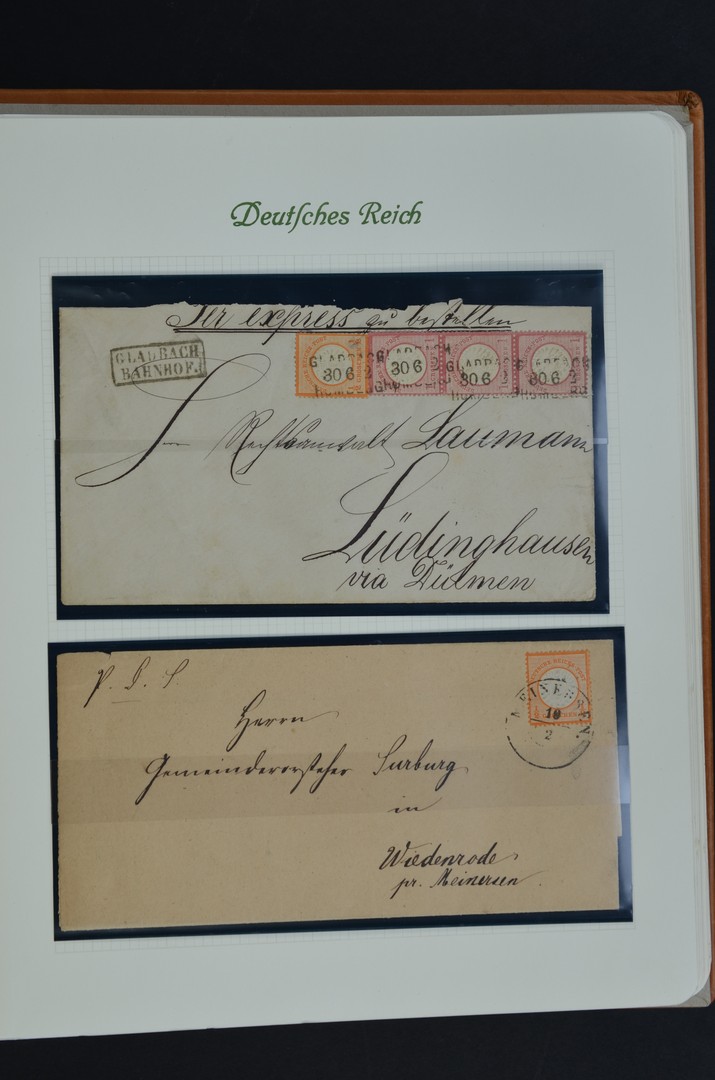 Deutſches Reich
Per express zu bestellen
GLADBACH
BAHNHOF.
GLADBACH
30 6
30 6
30 6
30 6
Rechtsanwalt Laumann
Lüdinghausen
via Dülmen
P. D. S.
MEINERSEN
10
2
Herrn
Gemeindevorsteher Surburg
in
Wiedenrode
pr. Meinersen